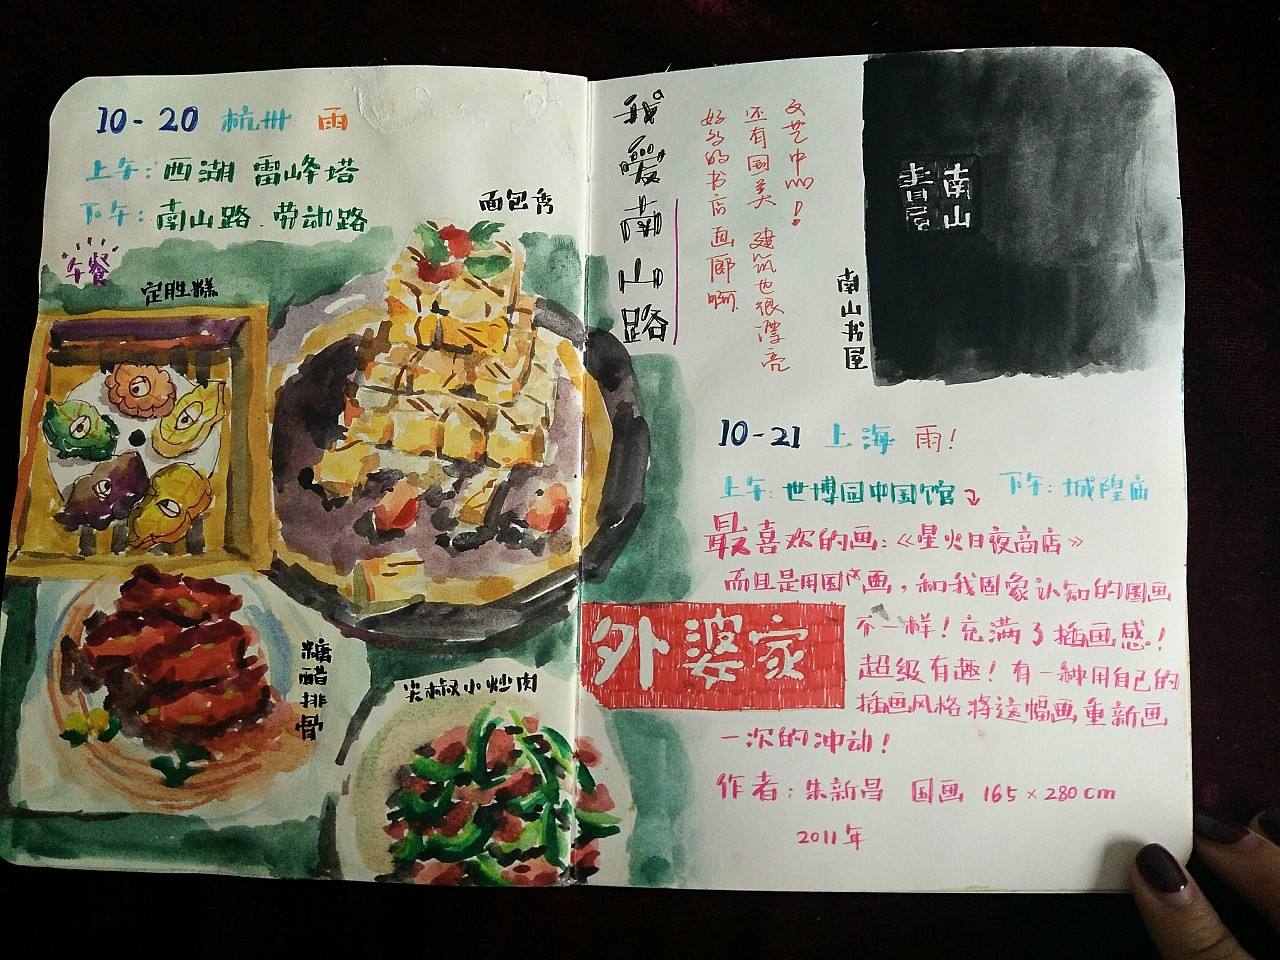 10-20 杭卅 雨
上午：西湖 雷峰塔
下午：南山路．劳动路
午餐
定胜糕
面包秀
糖醋排骨
尖椒小炒肉
我爱南山路
文艺中心！
还有国美 建筑也很漂亮
好多的书店 画廊啊
南山书屋
南山
書屋
10-21 上海 雨！
上午：世博园中国馆
下午：城隍庙
最喜欢的画：《星火日夜商店》
而且是用国画，和我印象认知的国画
不一样！充满了插画感！
超级有趣！有一种用自己的
插画风格将这幅画重新画
一次的冲动！
外婆家
作者：朱新昌 国画 165×280cm
2011年